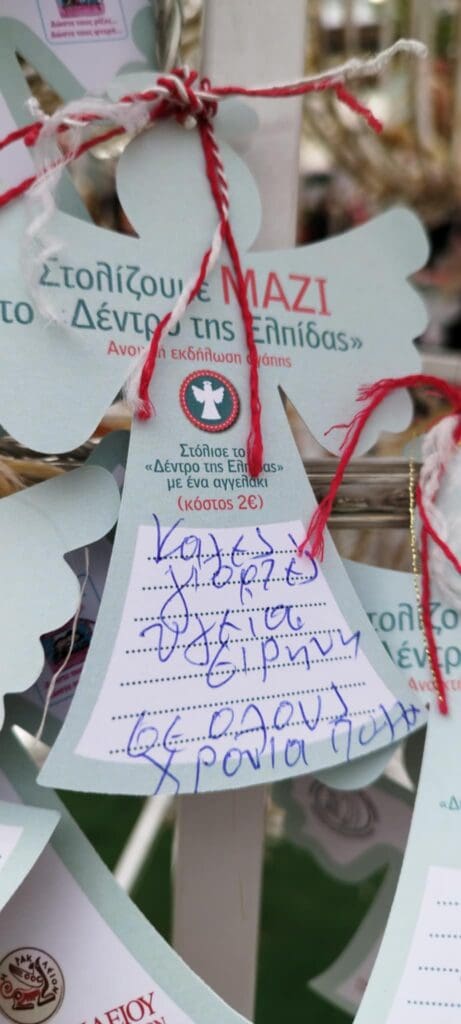 δώστε τους ρίζες...
δώστε τους φτερά...
Στολίζουμε ΜΑΖΙ
το «Δέντρο της Ελπίδας»
Ανοιχτή εκδήλωση αγάπης
Στόλισε το
«Δέντρο της Ελπίδας»
με ένα αγγελάκι
(κόστος 2€)
Καλες
γιορτες
υγεια
ειρηνη
σε ολους
χρονια πολλα